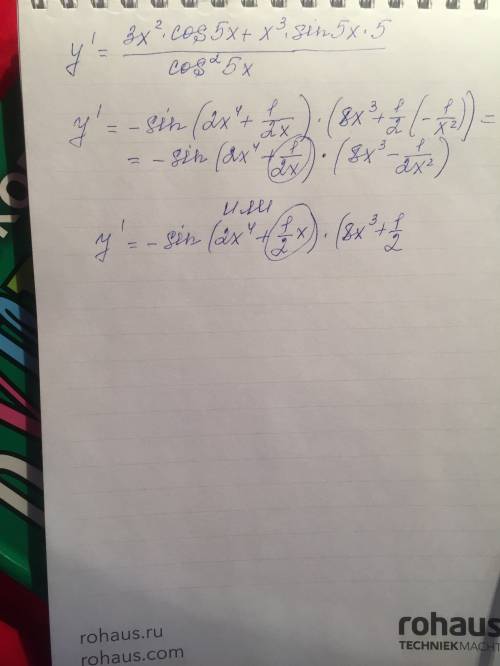 y' = (3x²·cos5x + x³·sin5x·5)/(cos²5x)
y' = -sin(2x⁴ + 1/(2x))·(8x³ + 1/2(-1/x²)) =
= -sin(2x⁴ + 1/(2x))·(8x³ - 1/(2x²))
или
y' = -sin(2x⁴ + 1/2 x)·(8x³ + 1/2
rohaus.ru
rohaus.com
rohaus
TECHNIEKMACHT